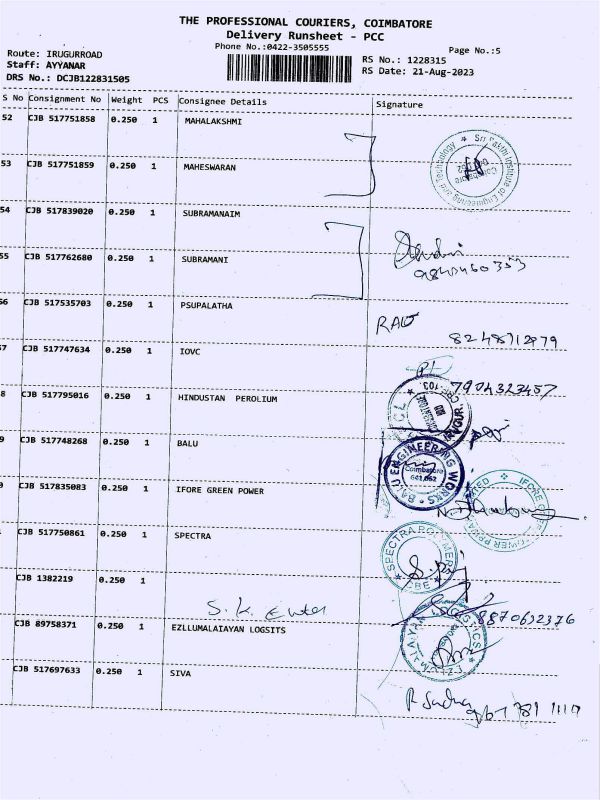 THE PROFESSIONAL COURIERS, COIMBATORE
Delivery Runsheet - PCC
Phone No.:0422-3505555
Page No.:5
Route: IRUGURROAD
Staff: AYYANAR
DRS No.: DCJB122831505
RS No.: 1228315
RS Date: 21-Aug-2023
S No Consignment No Weight PCS Consignee Details Signature
52 CJB 517751858 0.250 1 MAHALAKSHMI
53 CJB 517751859 0.250 1 MAHESWARAN
54 CJB 517839020 0.250 1 SUBRAMANAIM
55 CJB 517762680 0.250 1 SUBRAMANI
56 CJB 517535703 0.250 1 PSUPALATHA
RAO
7 CJB 517747634 0.250 1 IOVC
7904323457
8 CJB 517795016 0.250 1 HINDUSTAN PEROLIUM
9 CJB 517748268 0.250 1 BALU
BALU ENGINEERING WORKS
Coimbatore
641 062
CJB 517835083 0.250 1 IFORE GREEN POWER
CJB 517750861 0.250 1 SPECTRA
SPECTRA POLYMER
CJB 1382219 0.250 1
S. K. Enter
8870632376
CJB 89758371 0.250 1 EZLLUMALAIAYAN LOGSITS
CJB 517697633 0.250 1 SIVA